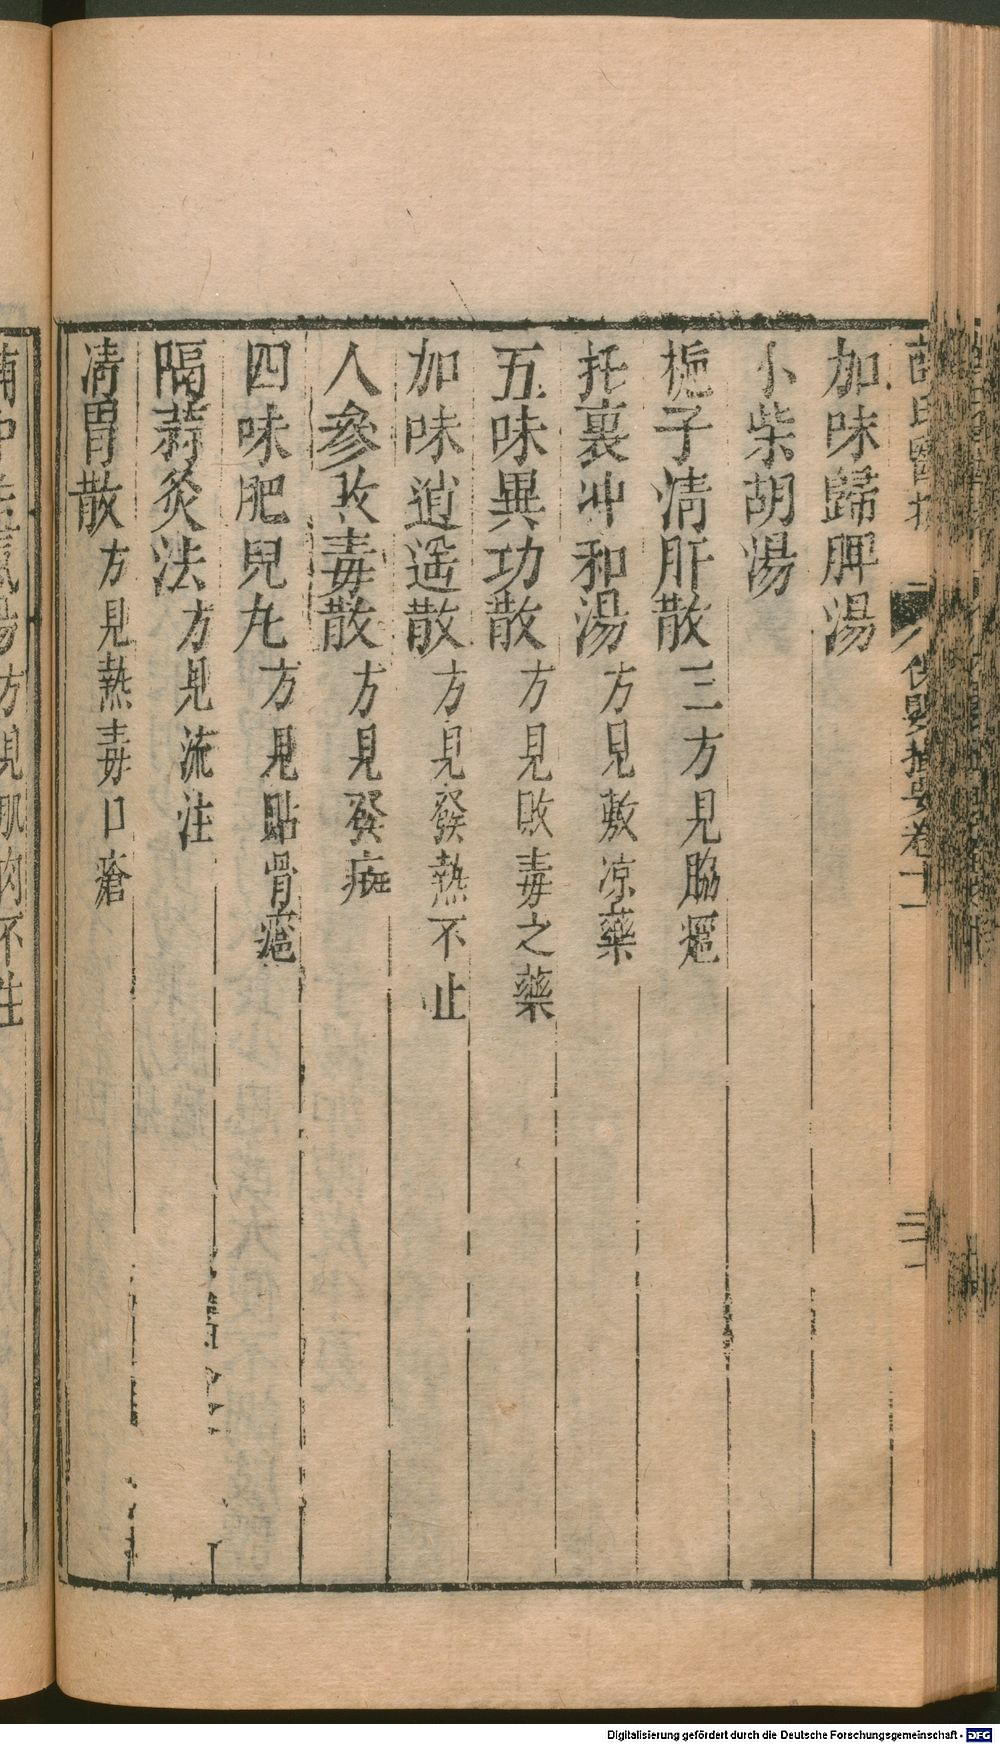 加味歸脾湯
小柴胡湯
梔子清肝散 三方見脇瘡
托裏冲和湯 方見敷凉藥
五味異功散 方見敗毒之藥
加味逍遥散 方見發熱不止
人參敗毒散 方見發痘
四味肥兒丸 方見貼骨瘡
隔蒜灸法 方見流注
清胃散 方見熱毒口瘡
湯方見肌肉不生
Digitalisierung gefördert durch die Deutsche Forschungsgemeinschaft - DFG